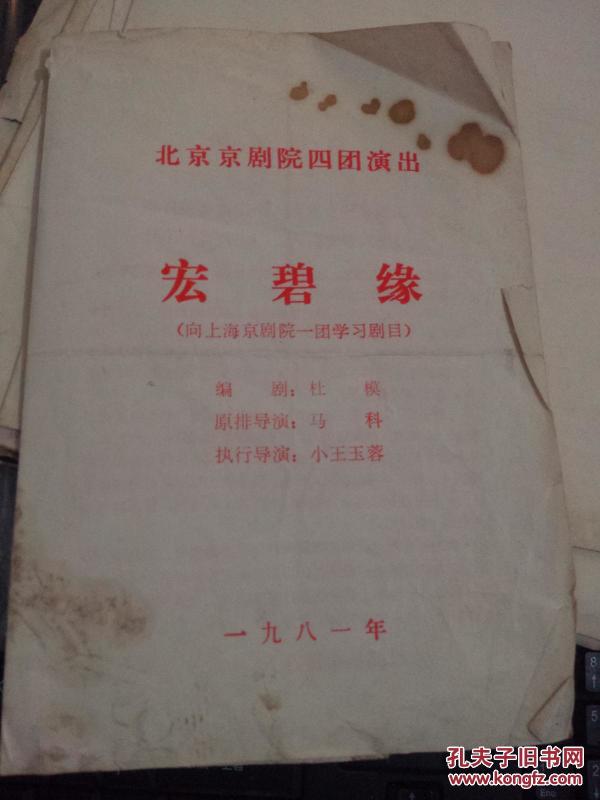 北京京剧院四团演出
宏碧缘
(向上海京剧院一团学习剧目)
编剧：杜模
原排导演：马科
执行导演：小王玉蓉
一九八一年
8
5
2
End
孔夫子旧书网
www.kongfz.com